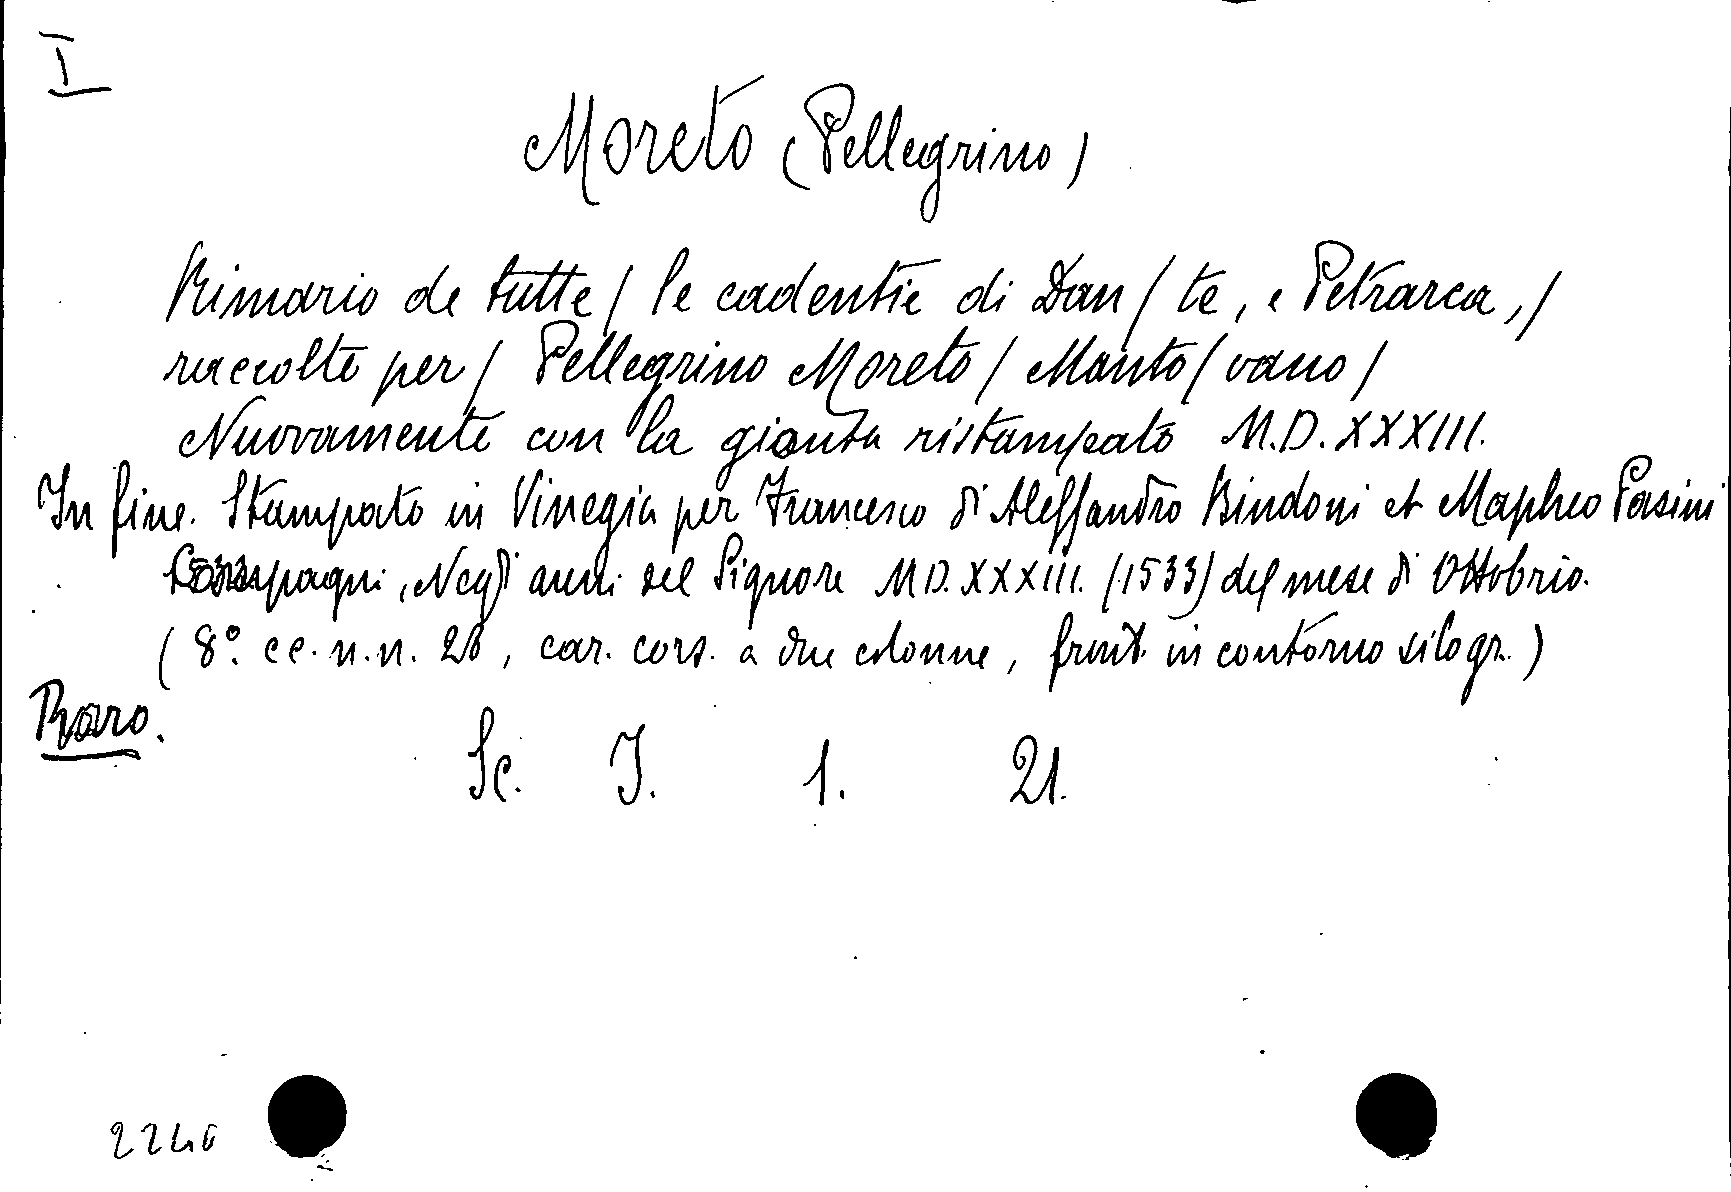 I
Moreto (Pellegrino)
Rimario de tutte / le cadentie di Dan / te, e Petrarca, /
raccolte per / Pellegrino Moreto / Manto / vano /
Nuovamente con la gionta ristampato M.D.XXXIII.
In fine. Stampato in Vinegia per Francesco di Alessandro Bindoni et Mapheo Pasini
Compagni, Negli anni del Signore MD.XXXIII. (1533) del mese di Ottobrio.
(8°. cc. n.n. 28, car. cors. a due colonne, front. in contorno silogr.)
Raro.
Sc. I. 1. 21.